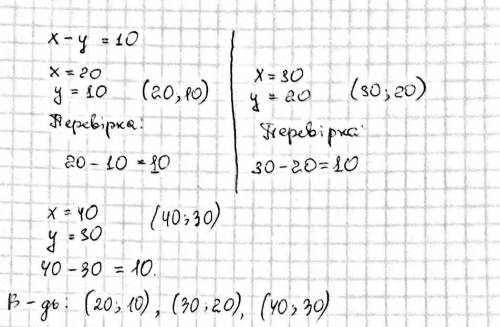 x - y = 10
x = 20
y = 10 (20; 10)
Перевірка:
20 - 10 = 10
x = 30
y = 20 (30; 20)
Перевірка:
30 - 20 = 10
x = 40 (40; 30)
y = 30
40 - 30 = 10.
В-дь: (20; 10), (30; 20), (40; 30)